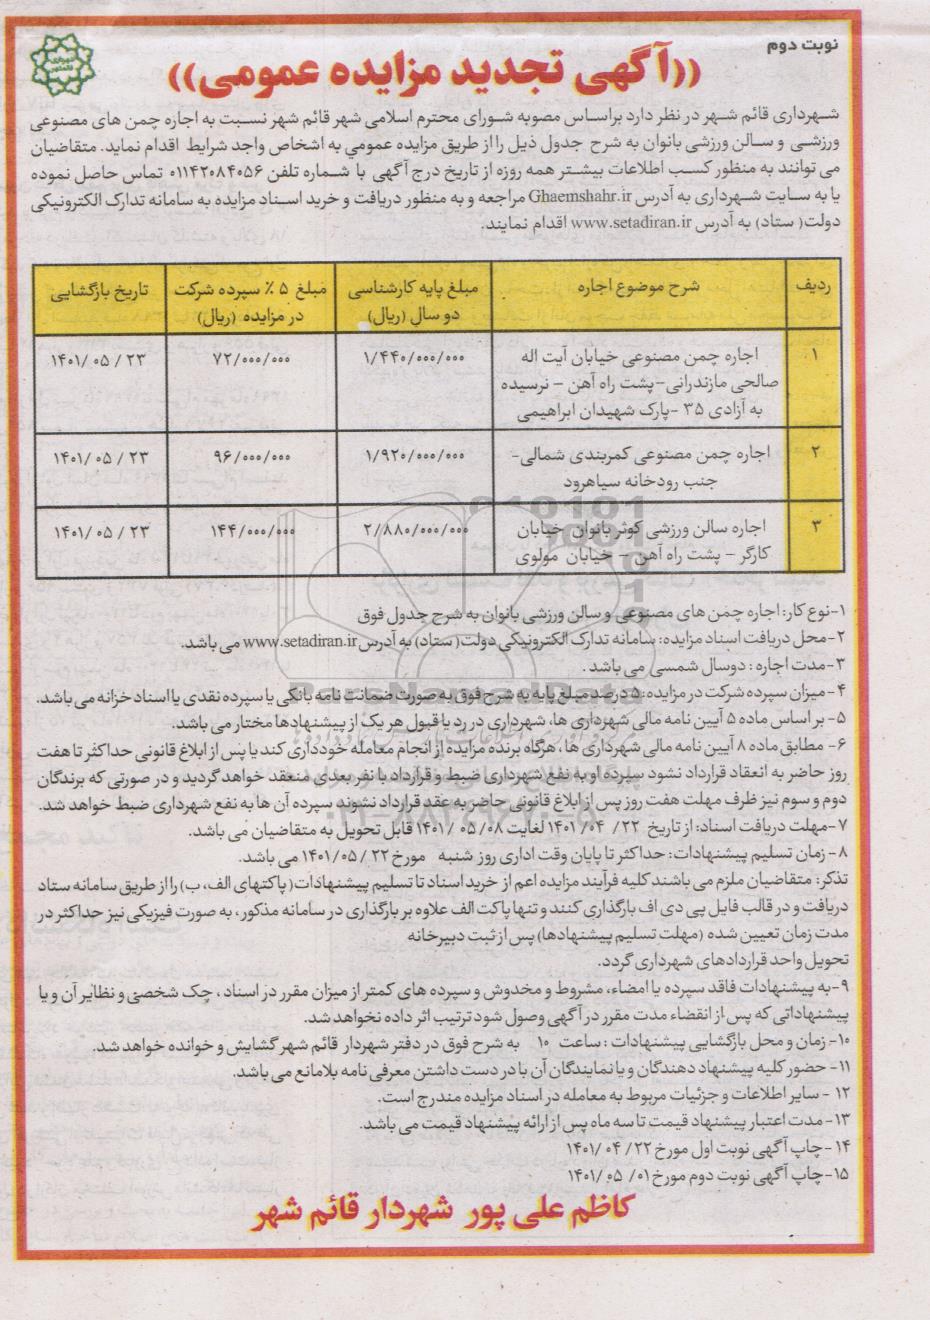 نوبت دوم
((آگهی تجدید مزایده عمومی))
شهرداری قائم شهر در نظر دارد براساس مصوبه شورای محترم اسلامی شهر قائم شهر نسبت به اجاره چمن های مصنوعی
ورزشی و سالن ورزشی بانوان به شرح جدول ذیل را از طریق مزایده عمومی به اشخاص واجد شرایط اقدام نماید. متقاضیان
می توانند به منظور کسب اطلاعات بیشتر همه روزه از تاریخ درج آگهی با شماره تلفن ۰۱۱۴۲۰۸۴۰۵۶ تماس حاصل نموده
یا به سایت شهرداری به آدرس Ghaemshahr.ir مراجعه و به منظور دریافت و خرید اسناد مزایده به سامانه تدارک الکترونیکی
دولت( ستاد) به آدرس www.setadiran.ir اقدام نمایند.
ردیف | شرح موضوع اجاره | مبلغ پایه کارشناسی دو سال (ریال) | مبلغ ۵ ٪ سپرده شرکت در مزایده (ریال) | تاریخ بازگشایی
۱ | اجاره چمن مصنوعی خیابان آیت اله صالحی مازندرانی-پشت راه آهن - نرسیده به آزادی ۳۵ -پارک شهیدان ابراهیمی | ۱/۴۴۰/۰۰۰/۰۰۰ | ۷۲/۰۰۰/۰۰۰ | ۱۴۰۱/ ۰۵ / ۲۳
۲ | اجاره چمن مصنوعی کمربندی شمالی- جنب رودخانه سیاهرود | ۱/۹۲۰/۰۰۰/۰۰۰ | ۹۶/۰۰۰/۰۰۰ | ۱۴۰۱/ ۰۵ / ۲۳
۳ | اجاره سالن ورزشی کوثر بانوان خیابان کارگر - پشت راه آهن - خیابان مولوی | ۲/۸۸۰/۰۰۰/۰۰۰ | ۱۴۴/۰۰۰/۰۰۰ | ۱۴۰۱/ ۰۵ / ۲۳
۱-نوع کار: اجاره چمن های مصنوعی و سالن ورزشی بانوان به شرح جدول فوق
۲-محل دریافت اسناد مزایده: سامانه تدارک الکترونیکی دولت( ستاد) به آدرس www.setadiran.ir می باشد.
۳-مدت اجاره : دوسال شمسی می باشد .
۴-میزان سپرده شرکت در مزایده: ۵ درصد مبلغ پایه به شرح فوق به صورت ضمانت نامه بانکی یا سپرده نقدی یا اسناد خزانه می باشد.
۵- بر اساس ماده ۵ آیین نامه مالی شهرداری ها، شهرداری در رد یا قبول هر یک از پیشنهادها مختار می باشد.
۶- مطابق ماده ۸ آیین نامه مالی شهرداری ها، هرگاه برنده مزایده از انجام معامله خودداری کند یا پس از ابلاغ قانونی حداکثر تا هفت
روز حاضر به انعقاد قرارداد نشود سپرده او به نفع شهرداری ضبط و قرارداد با نفر بعدی منعقد خواهد گردید و در صورتی که برندگان
دوم و سوم نیز ظرف مهلت هفت روز پس از ابلاغ قانونی حاضر به عقد قرارداد نشوند سپرده آن ها به نفع شهرداری ضبط خواهد شد.
۷-مهلت دریافت اسناد: از تاریخ ۲۲/ ۰۴/ ۱۴۰۱ لغایت ۰۸/ ۰۵/ ۱۴۰۱ قابل تحویل به متقاضیان می باشد.
۸- زمان تسلیم پیشنهادات: حداکثر تا پایان وقت اداری روز شنبه مورخ ۲۲ /۱۴۰۱/۰۵ می باشد.
تذکر: متقاضیان ملزم می باشند کلیه فرآیند مزایده اعم از خرید اسناد تا تسلیم پیشنهادات( پاکتهای الف، ب) را از طریق سامانه ستاد
دریافت و در قالب فایل پی دی اف بارگذاری کنند و تنها پاکت الف علاوه بر بارگذاری در سامانه مذکور، به صورت فیزیکی نیز حداکثر در
مدت زمان تعیین شده (مهلت تسلیم پیشنهادها) پس از ثبت دبیرخانه
تحویل واحد قراردادهای شهرداری گردد.
۹-به پیشنهادات فاقد سپرده یا امضاء، مشروط و مخدوش و سپرده های کمتر از میزان مقرر در اسناد ، چک شخصی و نظایر آن و یا
پیشنهاداتی که پس از انقضاء مدت مقرر در آگهی وصول شود ترتیب اثر داده نخواهد شد.
۱۰- زمان و محل بازگشایی پیشنهادات : ساعت ۱۰ به شرح فوق در دفتر شهردار قائم شهر گشایش و خوانده خواهد شد.
۱۱- حضور کلیه پیشنهاد دهندگان و یا نمایندگان آن با در دست داشتن معرفی نامه بلامانع می باشد.
۱۲ - سایر اطلاعات و جزئیات مربوط به معامله در اسناد مزایده مندرج است.
۱۳-مدت اعتبار پیشنهاد قیمت تا سه ماه پس از ارائه پیشنهاد قیمت می باشد.
۱۴-چاپ آگهی نوبت اول مورخ ۲۲/ ۰۴ /۱۴۰۱
۱۵-چاپ آگهی نوبت دوم مورخ ۰۱/ ۰۵ /۱۴۰۱
کاظم علی پور شهردار قائم شهر
ParsNamadData